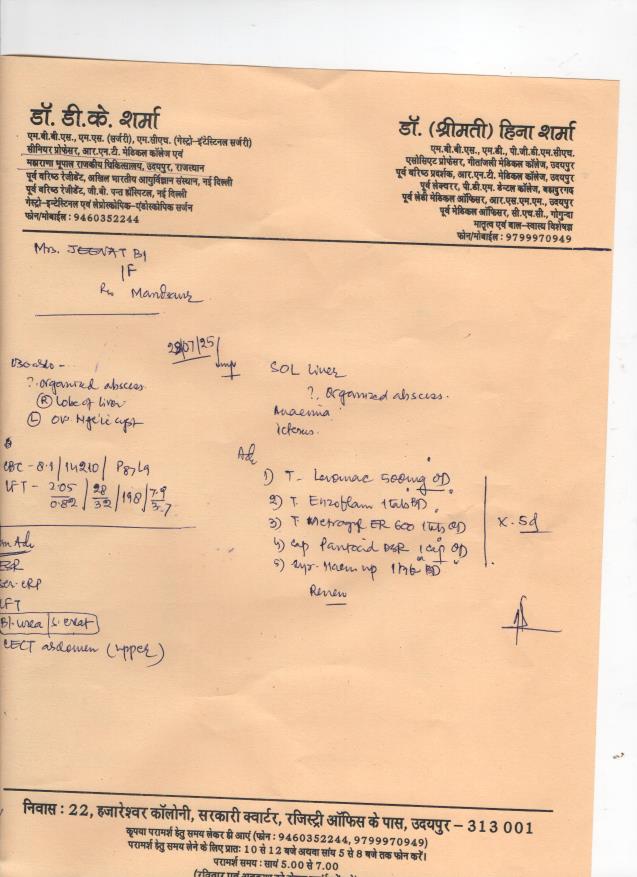 डॉ. डी.के. शर्मा
एम.बी.बी.एस., एम.एस. (सर्जरी), एम.सीएच. (गेस्ट्रो-इंटेस्टिनल सर्जरी)
सीनियर प्रोफेसर, आर.एन.टी. मेडिकल कॉलेज एवं
महाराणा भूपाल राजकीय चिकित्सालय, उदयपुर, राजस्थान
पूर्व वरिष्ठ रेजीडेंट, अखिल भारतीय आयुर्विज्ञान संस्थान, नई दिल्ली
पूर्व वरिष्ठ रेजीडेंट, जी.बी. पन्त हॉस्पिटल, नई दिल्ली
गेस्ट्रो-इन्टेस्टिनल एवं लेप्रोस्कोपिक-एंडोस्कोपिक सर्जन
फोन/मोबाईल : 9460352244
डॉ. (श्रीमती) हिना शर्मा
एम.बी.बी.एस., एम.डी., पी.जी.डी.एम.सीएच.
एसोसिएट प्रोफेसर, गीतांजली मेडिकल कॉलेज, उदयपुर
पूर्व वरिष्ठ प्रदर्शक, आर.एन.टी. मेडिकल कॉलेज, उदयपुर
पूर्व लेक्चरर, पी.डी.एम. डेन्टल कॉलेज, बहादुरगढ़
पूर्व लेडी मेडिकल ऑफिसर, आर.एस.एम.एम., उदयपुर
पूर्व मेडिकल ऑफिसर, सी.एच.सी., गोगुन्दा
मातृत्व एवं बाल-स्वास्थ्य विशेषज्ञ
फोन/मोबाईल : 9799970949
Mrs. JEENAT BI
/F
R/o Mandsaur
28/07/25
? organized abscess
(R) lobe of liver
(L) ov.
CBC - 8.1 / 14210 / P87 L9
LFT - 2.05/0.82 / 28/32 / 198 / 7.9/3.7
Adv
ESR
CRP
LFT
Bl. urea / S. creat
CECT abdomen (upper)
Imp
SOL liver
? organized abscess.
Anaemia
Icterus.
Adv
1) T. Levomac 500mg OD
2) T. Enzoflam 1 tab BD
3) T. Metrogyl ER 600 1 tab OD
4) Cap Pantocid DSR 1 cap OD
5) Syr. Haem up BD
X. 5d
Review
निवास : 22, हजारेश्वर कॉलोनी, सरकारी क्वार्टर, रजिस्ट्री ऑफिस के पास, उदयपुर - 313 001
कृपया परामर्श हेतु समय लेकर ही आएं (फोन : 9460352244, 9799970949)
परामर्श हेतु समय लेने के लिए प्रातः 10 से 12 बजे अथवा सांय 5 से 8 बजे तक फोन करें।
परामर्श समय : सायं 5.00 से 7.00